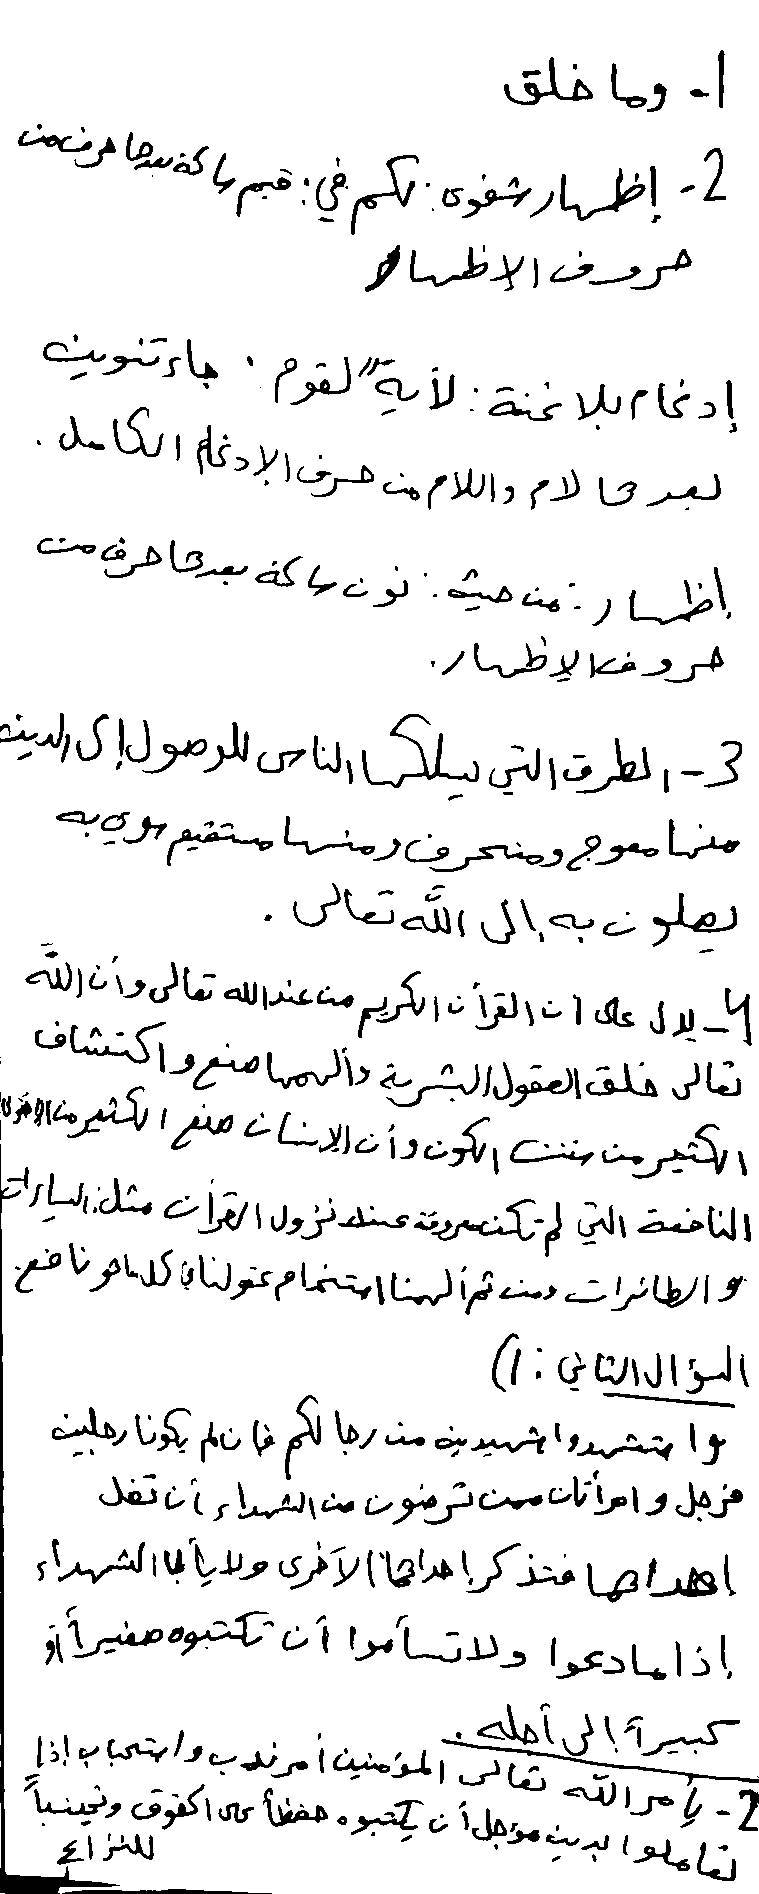 1- وما خلق
2- إظهار شفوي : لكم في : قيم ساكنة بعدها حرف من
حروف الإظهار
إدغام بلا غنة : لأيةً لقوم : جاء تنوين
بعدها لام واللام من حرف الإدغام الكامل .
إظهار : من حيث : نون ساكنة بعدها حرف من
حروف الإظهار .
3- الطرق التي يسلكها الناس للوصول إلى الدين
منها معوج ومنحرف ومنها مستقيم سوي به
يصلون به إلى الله تعالى .
4- يدل على أن القرآن الكريم من عند الله تعالى وأن الله
تعالى خلق العقول البشرية وألهمها صنع واكتشاف
الكثير من سنن الكون وأن الإنسان صنع الكثير من الأمور
النافعة التي لم تكن معروفة عند نزول القرآن مثل السيارات
والطائرات ومن ثم ألهمنا استخدام عقولنا في كل ما هو نافع
السؤال الثاني : 1)
واستشهدوا شهيدين من رجالكم فإن لم يكونا رجلين
فرجل وامرأتان ممن ترضون من الشهداء أن تضل
إحداهما فتذكر إحداهما الأخرى ولا يأب الشهداء
إذا ما دعوا ولا تسأموا أن تكتبوه صغيراً أو
كبيراً إلى أجله .
2- يأمر الله تعالى المؤمنين أمر ندب واستحباب إذا
تعاملوا بدين مؤجل أن يكتبوه حفظاً على الحقوق وتجنباً
للنزاع